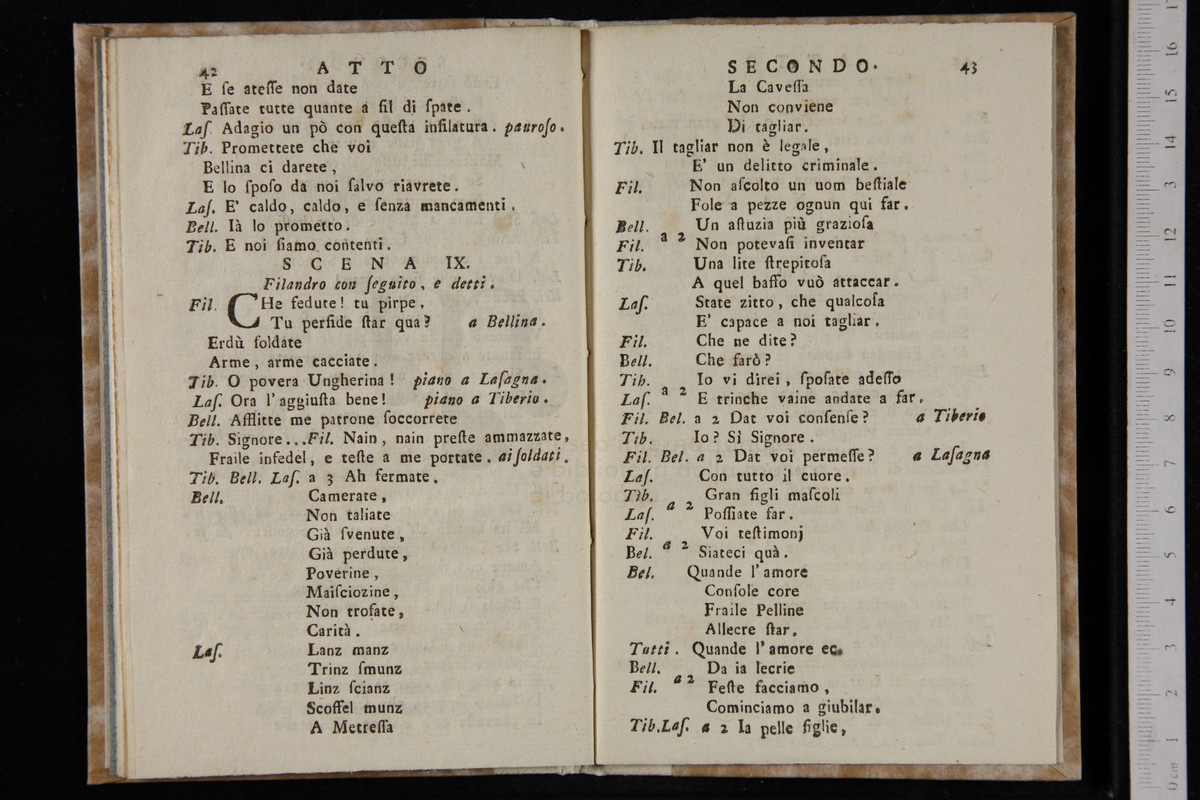 42 ATTO
E ſe ateſſe non date
Paſſate tutte quante a fil di ſpate.
Laſ. Adagio un pò con queſta infilatura. pauroſo.
Tib. Promettete che voi
Bellina ci darete,
E lo ſpoſo da noi ſalvo riavrete.
Laſ. E' caldo, caldo, e ſenza mancamenti.
Bell. Ià lo prometto.
Tib. E noi ſiamo contenti.
SCENA IX.
Filandro con ſeguito, e detti.
Fil. CHe fedute! tu pirpe,
Tu perfide ſtar qua? a Bellina.
Erdù ſoldate
Arme, arme cacciate.
Tib. O povera Ungherina! piano a Laſagna.
Laſ. Ora l'aggiuſta bene! piano a Tiberio.
Bell. Afflitte me patrone ſoccorrete
Tib. Signore...Fil. Nain, nain preſte ammazzate,
Fraile infedel, e teſte a me portate. ai ſoldati.
Tib. Bell. Laſ. a 3 Ah fermate.
Bell. Camerate,
Non taliate
Già ſvenute,
Già perdute,
Poverine,
Maiſciozine,
Non trofate,
Carità.
Laſ. Lanz manz
Trinz ſmunz
Linz ſcianz
Scoffel munz
A Metreſſa
SECONDO. 43
La Caveſſa
Non conviene
Di tagliar.
Tib. Il tagliar non è legale,
E' un delitto criminale.
Fil. Non aſcolto un uom beſtiale
Fole a pezze ognun qui far.
Bell. Un aſtuzia più grazioſa
Fil. a 2 Non potevaſi inventar
Tib. Una lite ſtrepitoſa
A quel baffo vuò attaccar.
Laſ. State zitto, che qualcoſa
E' capace a noi tagliar.
Fil. Che ne dite?
Bell. Che farò?
Tib. Io vi direi, ſpoſate adeſſo
Laſ. a 2 E trinche vaine andate a far.
Fil. Bel. a 2 Dat voi conſenſe? a Tiberio
Tib. Io? Sì Signore.
Fil. Bel. a 2 Dat voi permeſſe? a Laſagna
Laſ. Con tutto il cuore.
Tib. Gran figli maſcoli
Laſ. a 2 Poſſiate far.
Fil. Voi teſtimonj
Bel. a 2 Siateci quà.
Bel. Quande l'amore
Conſole core
Fraile Pelline
Allecre ſtar.
Tutti. Quande l'amore ec.
Bell. Da ia lecrie
Fil. a 2 Feſte facciamo,
Cominciamo a giubilar.
Tib.Laſ. a 2 Ia pelle figlie,